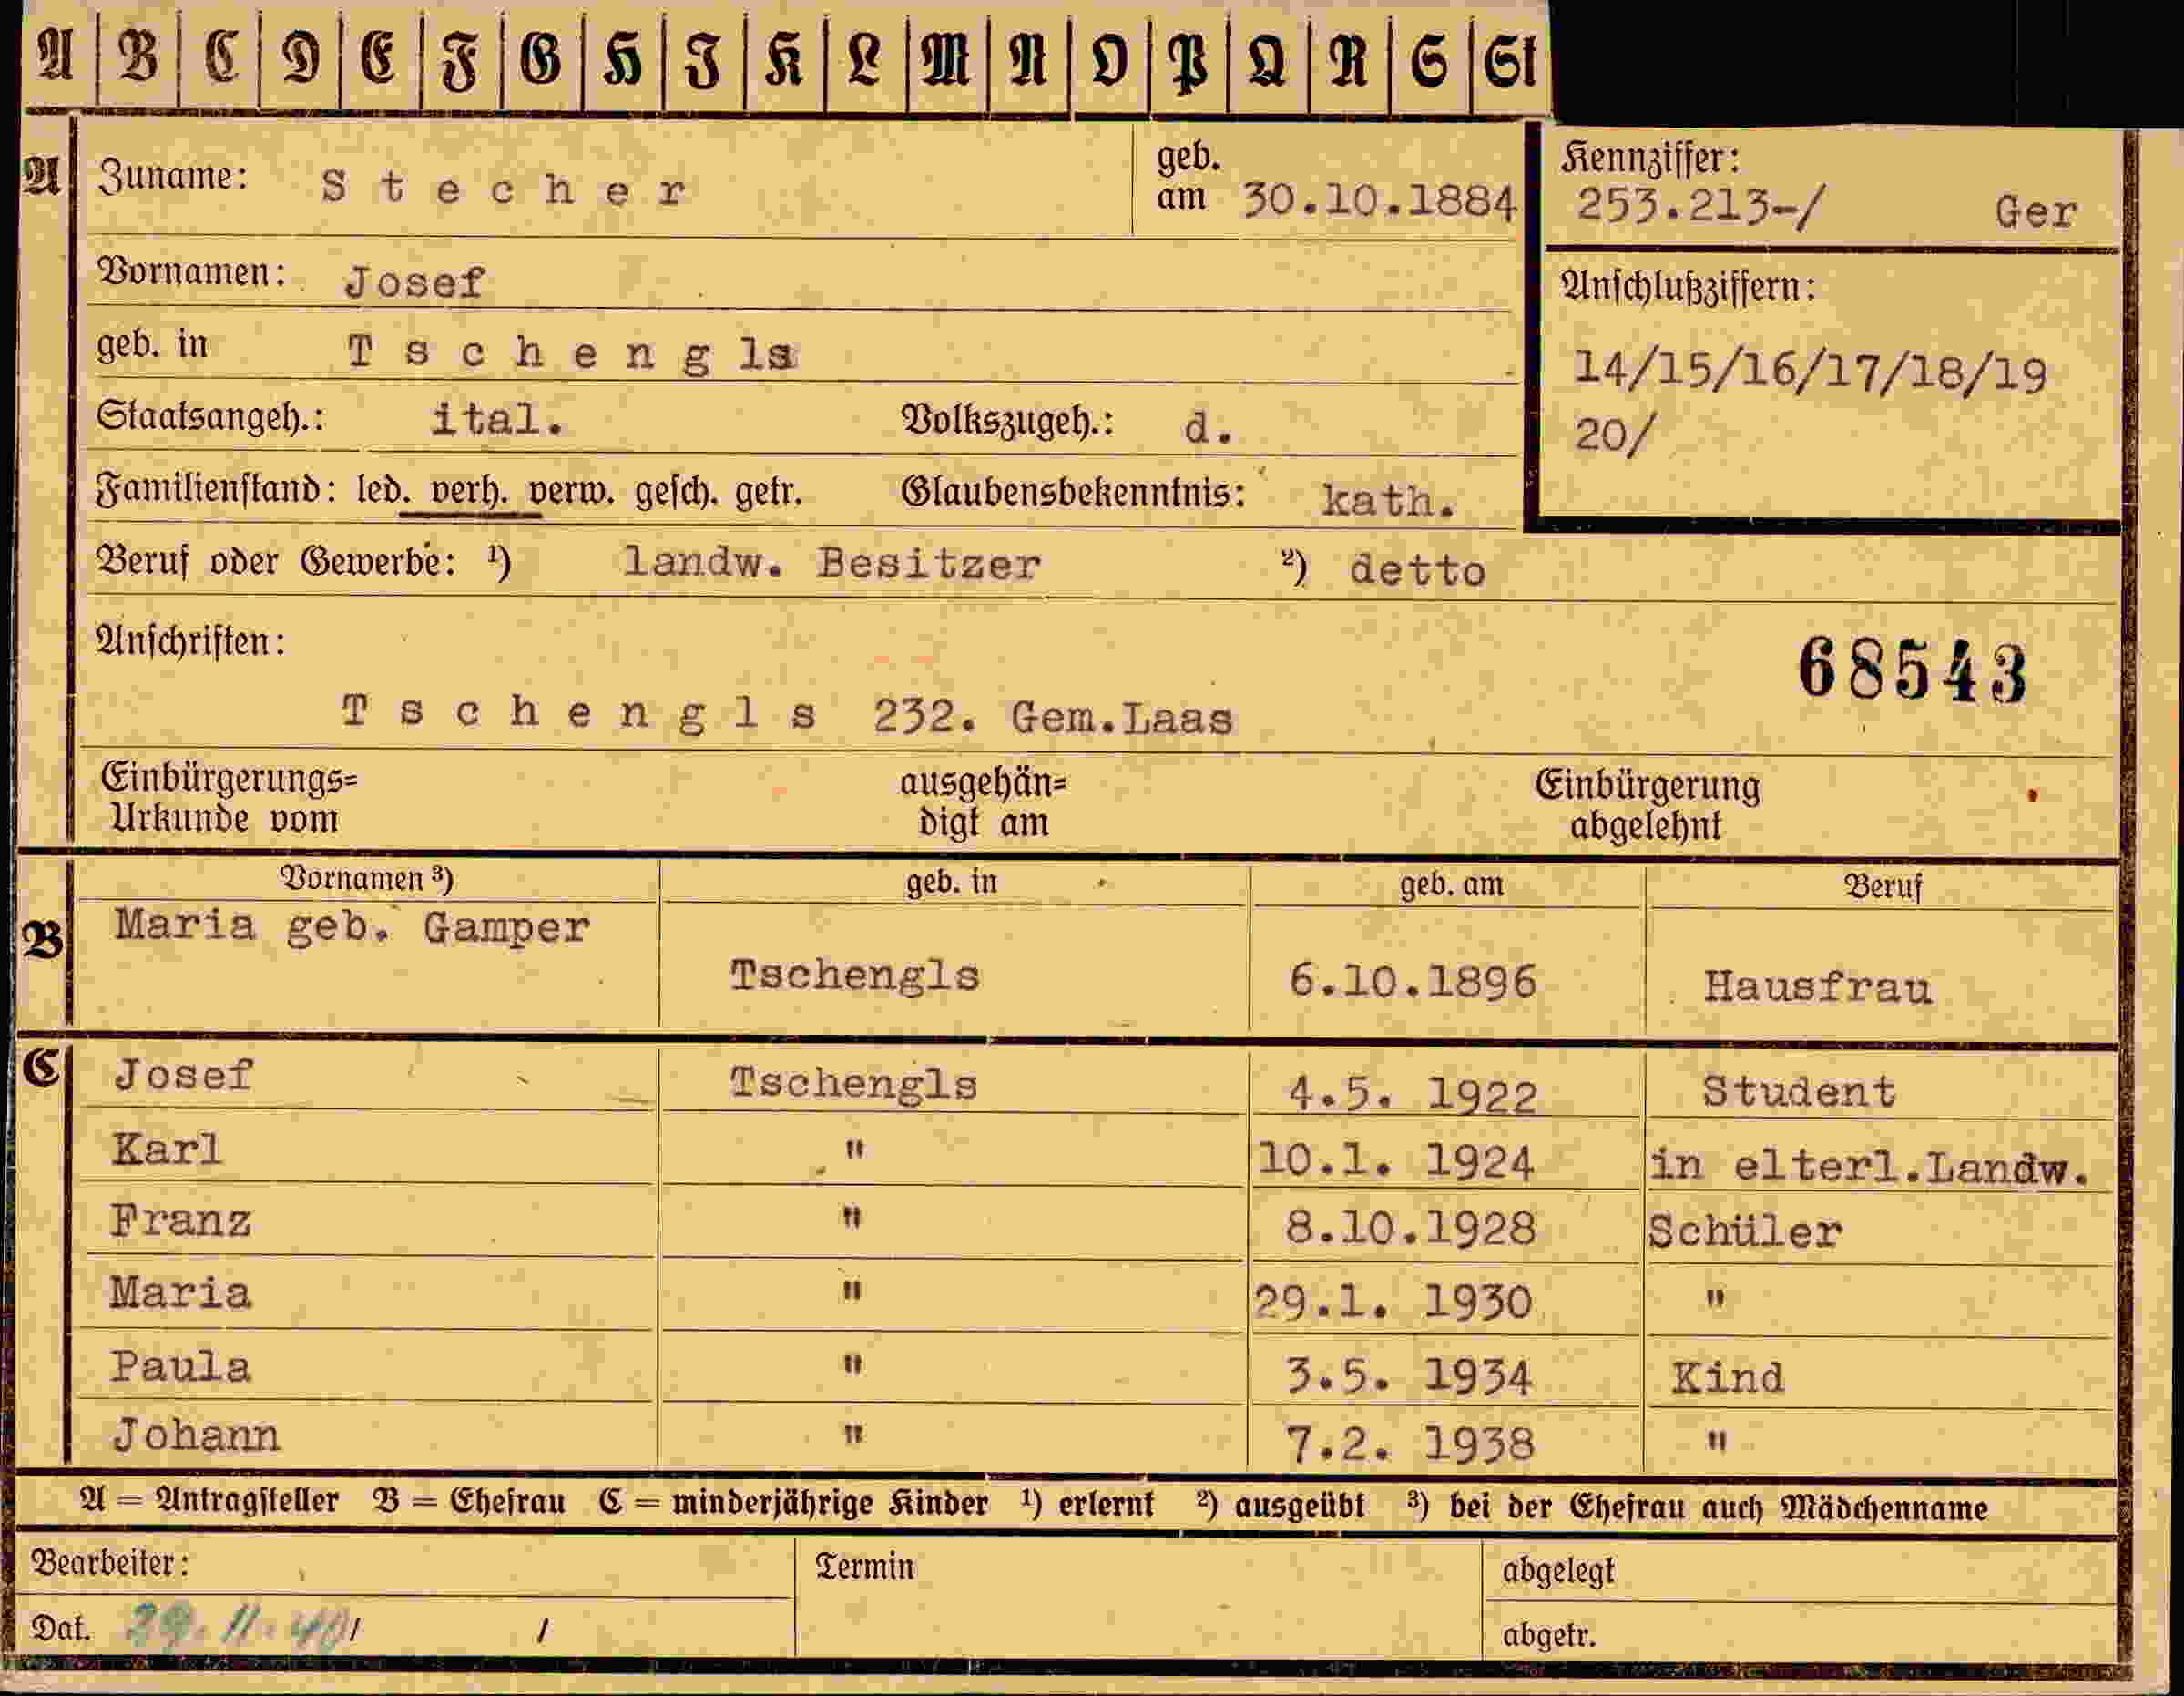 A B C D E F G H I K L M N O P Q R S St
A Zuname: Stecher geb. am 30.10.1884 Kennziffer: 253.213-/ Ger
Vornamen: Josef
Anschlußziffern:
geb. in Tschengls
14/15/16/17/18/19
Staatsangeh.: ital. Volkszugeh.: d.
20/
Familienstand: led. verh. verw. gesch. getr. Glaubensbekenntnis: kath.
Beruf oder Gewerbe: ¹) landw. Besitzer ²) detto
Anschriften:
68543
Tschengls 232. Gem.Laas
Einbürgerungs= ausgehän= Einbürgerung
Urkunde vom digt am abgelehnt
Vornamen ³) geb. in geb. am Beruf
B Maria geb. Gamper
Tschengls 6.10.1896 Hausfrau
C Josef Tschengls 4.5. 1922 Student
Karl " 10.1. 1924 in elterl.Landw.
Franz " 8.10.1928 Schüler
Maria " 29.1. 1930 "
Paula " 3.5. 1934 Kind
Johann " 7.2. 1938 "
A = Antragsteller B = Ehefrau C = minderjährige Kinder ¹) erlernt ²) ausgeübt ³) bei der Ehefrau auch Mädchenname
Bearbeiter: Termin abgelegt
Dat. 29.11.40/ / abgetr.